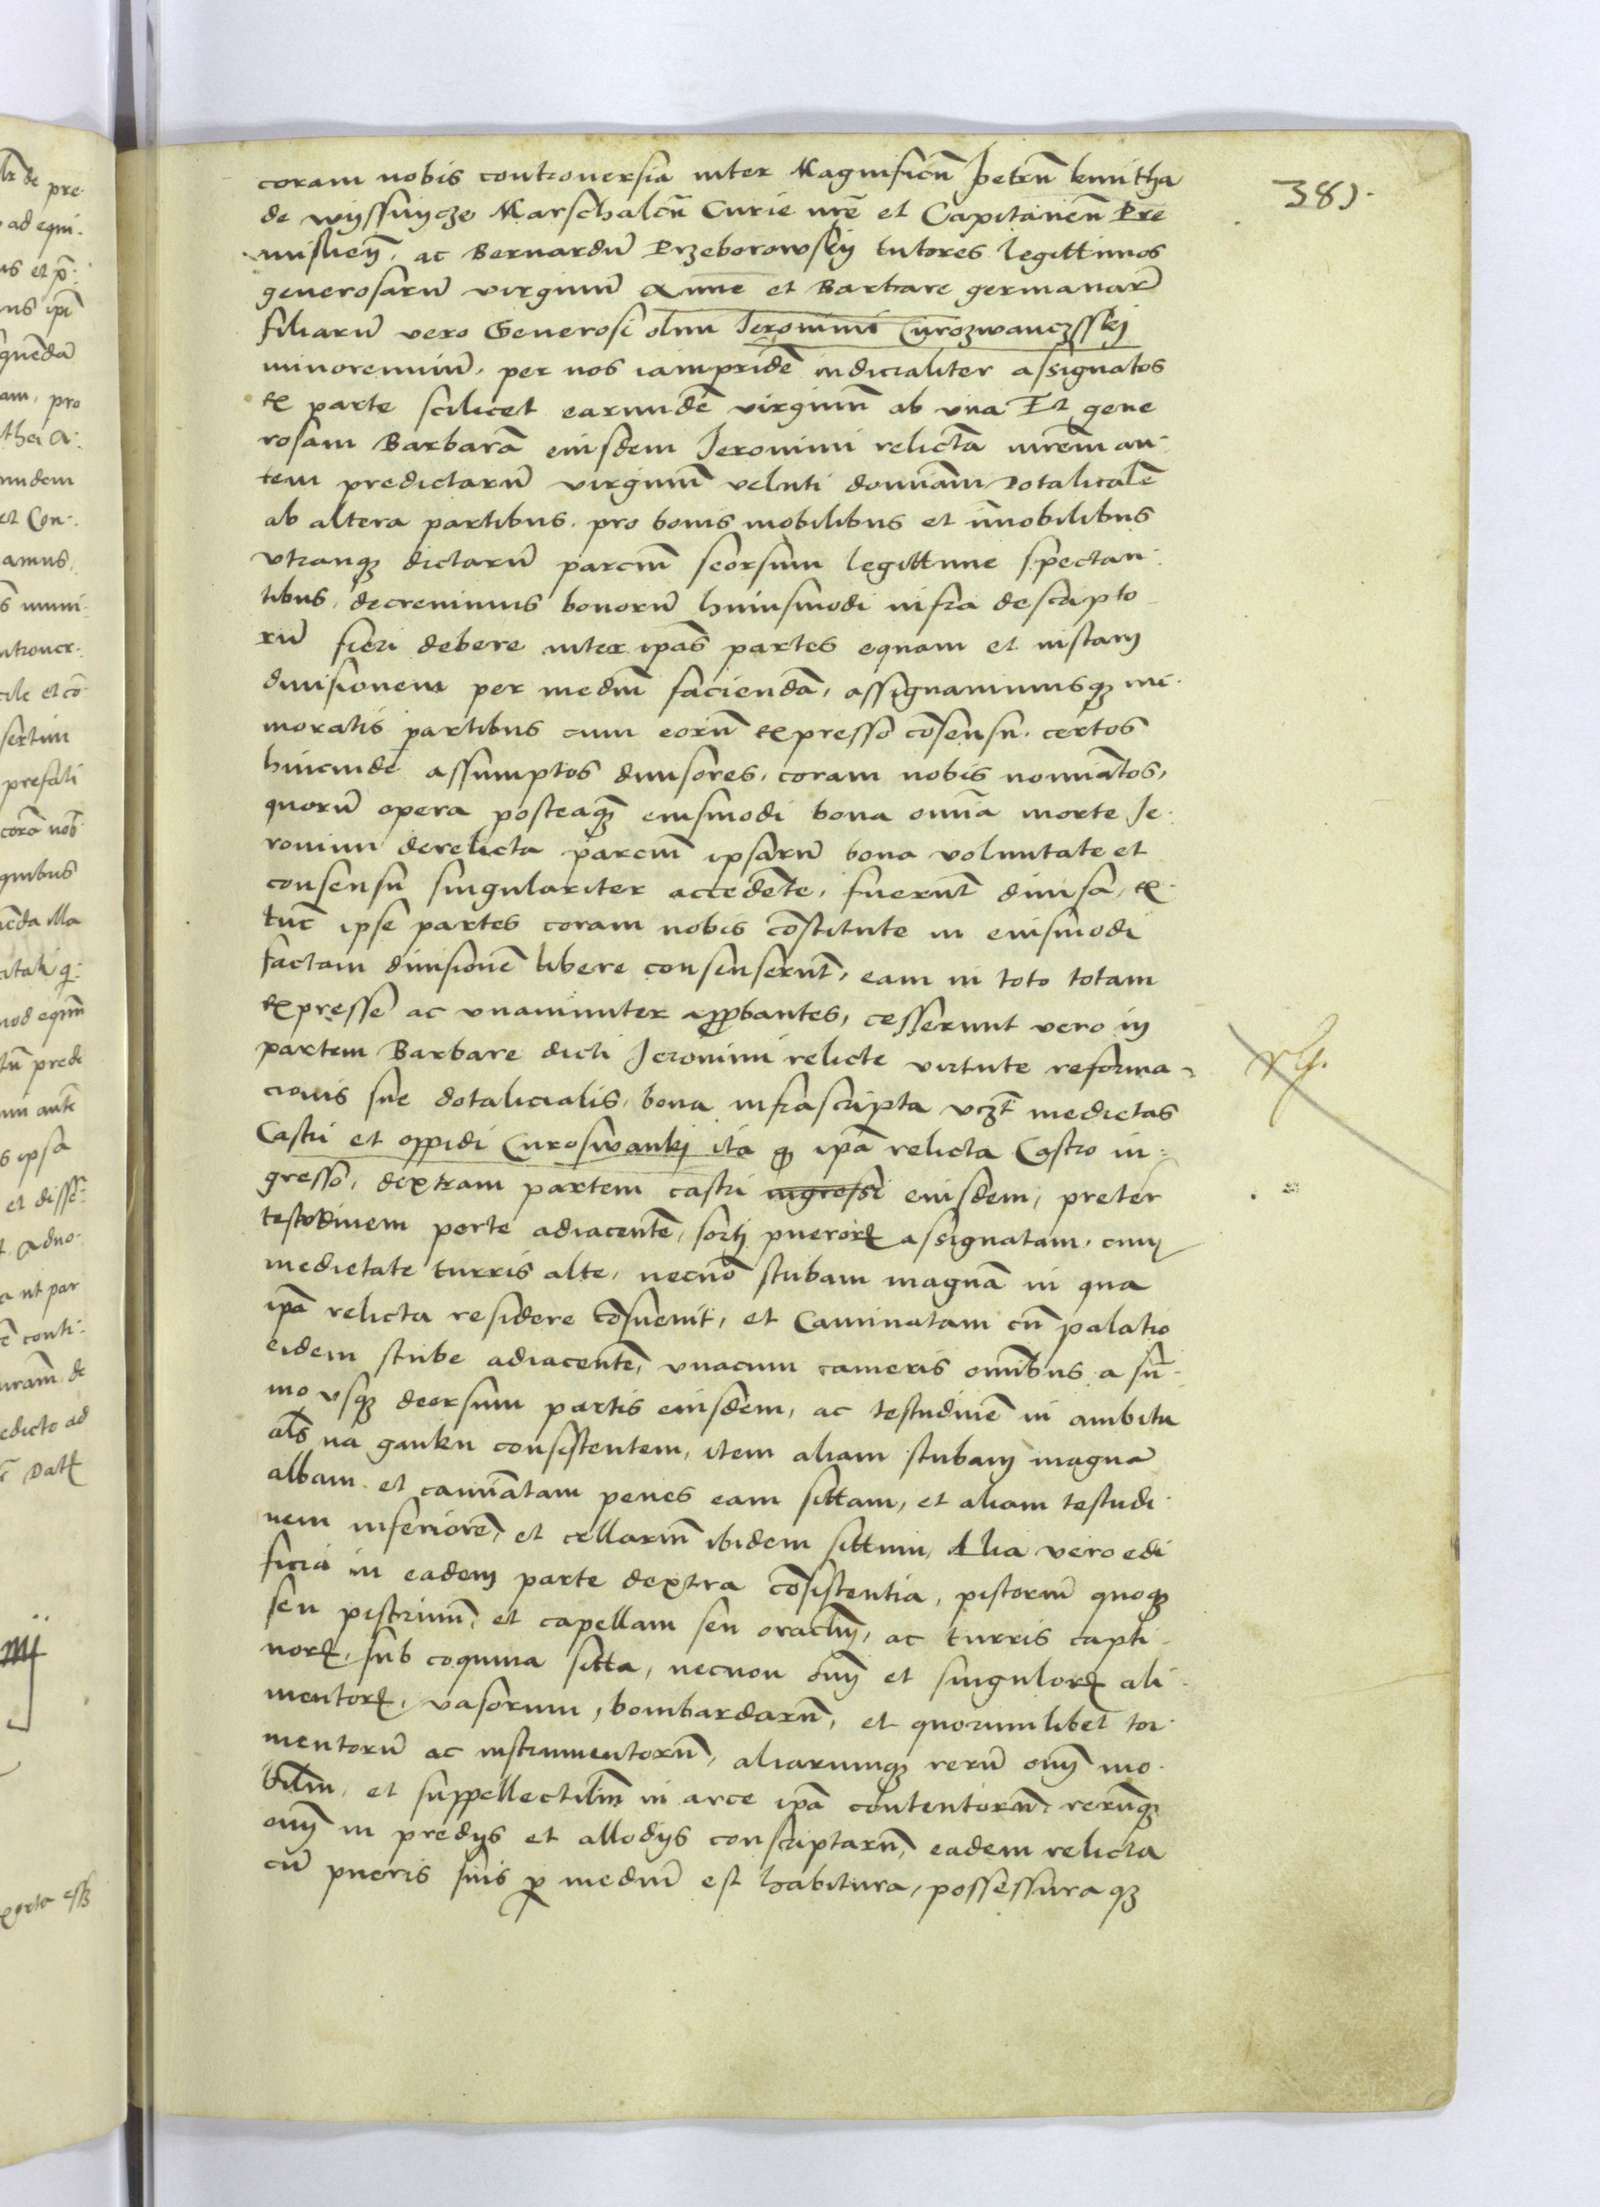 381.
coram nobis controversia inter Magnificū Petrū kmitha
de wyssnycze Marschalcū Curie nrē et Capitaneū Pre
misliēn, ac Bernardū Przeborowskÿ tutores legittimos
generosarū virginū Anne et Barbare germanarū
filiarū vero Generosi olim Jeronimi Curozwanczsskÿ
minorenniū, per nos iampridē iudicialiter assignatos
ex parte scilicet earundē virginū ab vna Et gene
rosam Barbarā eiusdem Jeronimi relictā mrēm au-
tem predictarū virginū veluti donnām dotalicalē
ab altera partibus, pro bonis mobilibus et īmobilibus
vtranqz dictarū parciū seorsum legittime spectan
tibus, decreuimus bonorū huiusmodi infra descripto
rū fieri debere inter ipās partes equam et iustam
diuisionem per mediū faciendā, assignauimusqz me
moratis partibus cum eorū expresso cōsensu, certos
hincinde assumptos diuisores, coram nobis nomiātos,
quorū opera posteaqz̄ eiusmodi bona omīa morte Je
ronimi derelicta parciū ipsarū bona voluntate et
consensu singulariter accedēte, fuerūt diuisa, ex
tūc ipse partes coram nobis cōstitute in eiusmodi
factam diuisionē libere consenserūt, eam in toto totam
expresse ac vnanimiter approbantes, cesserunt vero in
partem Barbare dicti Jeronimi relicte virtute reforma-
cionis sue dotalicialis, bona infrascripta vczt medietas
Castri et oppidi Curoswankÿ ita q ipā relicta Castro in-
gresso, dextram partem castri ingressi eiusdem, preter
testudinem porte adiacentē, sorti pueror assignatam, cum
medietate turris alte, necnō stubam magnā in qua
ipā relicta residere cōsueuit, et Caminatam cū palatio
eidem stube adiacentē, vnacum cameris omībus a sū-
mo vsqz deorsum partis eiusdem, ac testudinē in ambitu
als na ganku consistentem, item aliam stubam magnā
albam et camiātam penes eam sittam, et aliam testudi
nem inferiorē, et cellariū ibidem sittum, Alia vero edi
ficia in eadem parte dextra cōsistentia, pistoriū quoqz
seu pistrinū, et capellam seu oraclm̄, ac turris capti
uor, sub coquina sitta, necnon oim̄ et singulor ali
mentor, vasorum, bombardarū, et quorumlibet tor
mentorū ac instrumentorū, aliarumqz rerū oim̄ mo
biliū, et suppellectiliū in arce ipā contentorū, rerūqz
oim̄ in predijs et allodijs conscriptarū, eadem relicta
cū pueris suis p mediū est habitura, possessuraqz